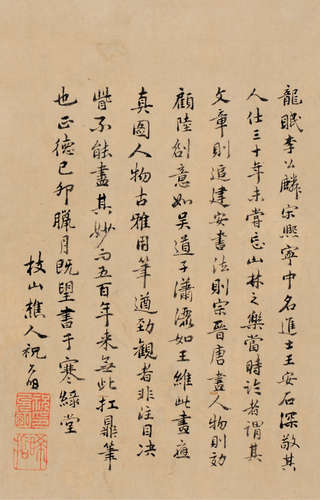 龍眠李公麟宋熙寧中名進士王安石深敬其
人仕三十年未嘗忘山林之樂當時論者謂其
文章則追建安書法則宗晉唐畫人物則効
顧陸創意如吳道子瀟灑如王維此畫應
真圖人物古雅用筆遒勁觀者非注目決
眥不能盡其妙而五百年來無此扛鼎筆
也正德己卯臘月既望書于寒綠堂
枝山樵人祝允明